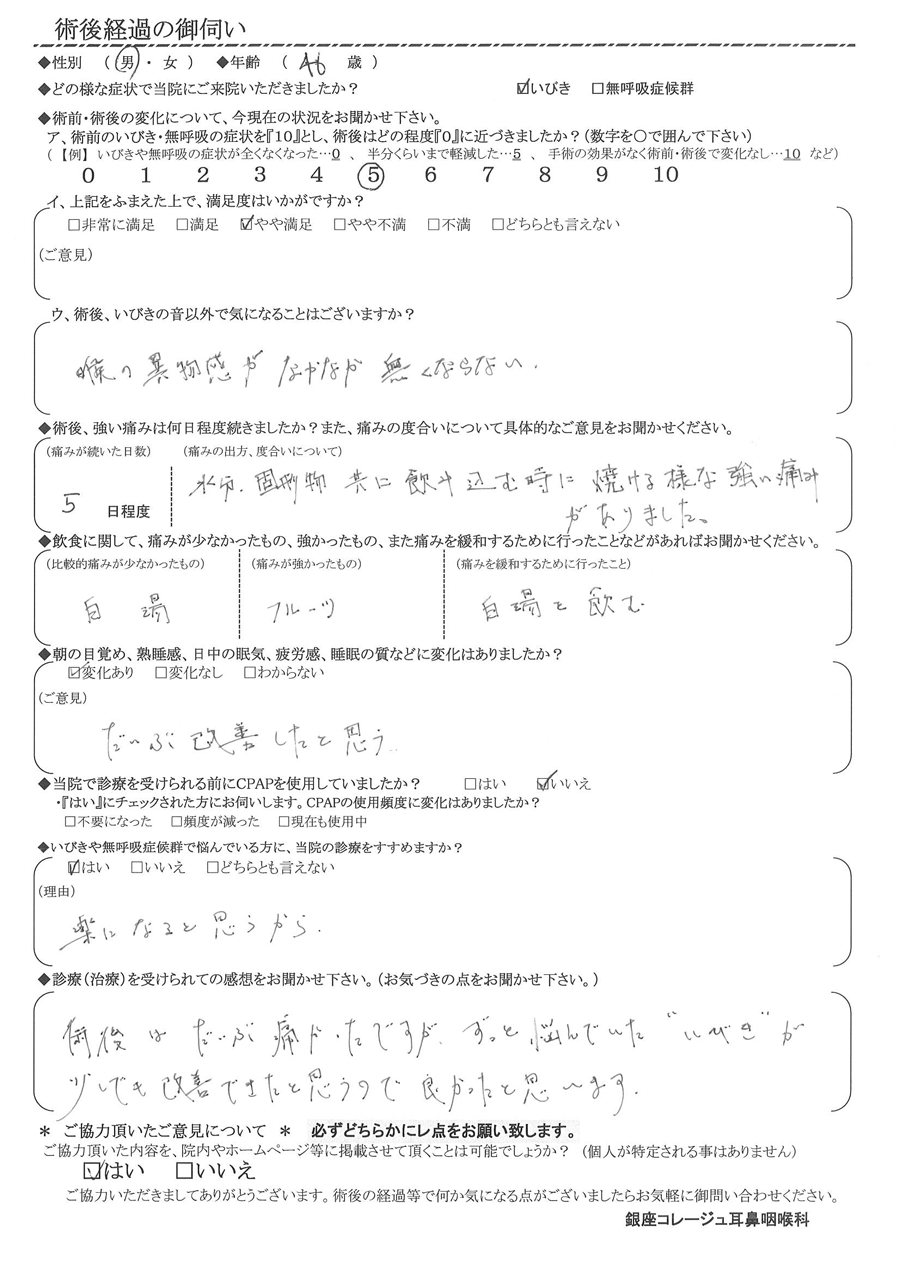 術後経過の御伺い
◆性別 （ 男 ・ 女 ） ◆年齢 （ 46 歳 ）
◆どの様な症状で当院にご来院いただきましたか？ ☑いびき □無呼吸症候群
◆術前・術後の変化について、今現在の状況をお聞かせ下さい。
ア、術前のいびき・無呼吸の症状を『10』とし、術後はどの程度『0』に近づきましたか？（数字を〇で囲んで下さい）
（ 【例】 いびきや無呼吸の症状が全くなくなった…0 、 半分くらいまで軽減した…5 、 手術の効果がなく術前・術後で変化なし…10 など）
0 1 2 3 4 5 6 7 8 9 10
イ、上記をふまえた上で、満足度はいかがですか？
□非常に満足 □満足 ☑やや満足 □やや不満 □不満 □どちらとも言えない
（ご意見）
ウ、術後、いびきの音以外で気になることはございますか？
喉の異物感がなかなか無くならない．
◆術後、強い痛みは何日程度続きましたか？また、痛みの度合いについて具体的なご意見をお聞かせください。
（痛みが続いた日数） （痛みの出方、度合いについて）
水分．固形物 共に飲み込む時に焼ける様な強い痛み
5 日程度
がありました。
◆飲食に関して、痛みが少なかったもの、強かったもの、また痛みを緩和するために行ったことなどがあればお聞かせください。
（比較的痛みが少なかったもの） （痛みが強かったもの） （痛みを緩和するために行ったこと）
白湯 フルーツ 白湯を飲む
◆朝の目覚め、熟睡感、日中の眠気、疲労感、睡眠の質などに変化はありましたか？
☑変化あり □変化なし □わからない
（ご意見）
だいぶ改善したと思う．
◆当院で診療を受けられる前にCPAPを使用していましたか？ □はい ☑いいえ
・『はい』にチェックされた方にお伺いします。CPAPの使用頻度に変化はありましたか？
□不要になった □頻度が減った □現在も使用中
◆いびきや無呼吸症候群で悩んでいる方に、当院の診療をすすめますか？
☑はい □いいえ □どちらとも言えない
（理由）
楽になると思うから．
◆診療（治療）を受けられての感想をお聞かせ下さい。（お気づきの点をお聞かせ下さい。）
術後はだいぶ痛かったですが．ずっと悩んでいた“いびき”が
少しでも改善できたと思うので良かったと思います．
＊ ご協力頂いたご意見について ＊ 必ずどちらかにレ点をお願い致します。
ご協力頂いた内容を、院内やホームページ等に掲載させて頂くことは可能でしょうか？ （個人が特定される事はありません）
☑はい □いいえ
ご協力いただきましてありがとうございます。術後の経過等で何か気になる点がございましたらお気軽に御問い合わせください。
銀座コレージュ耳鼻咽喉科